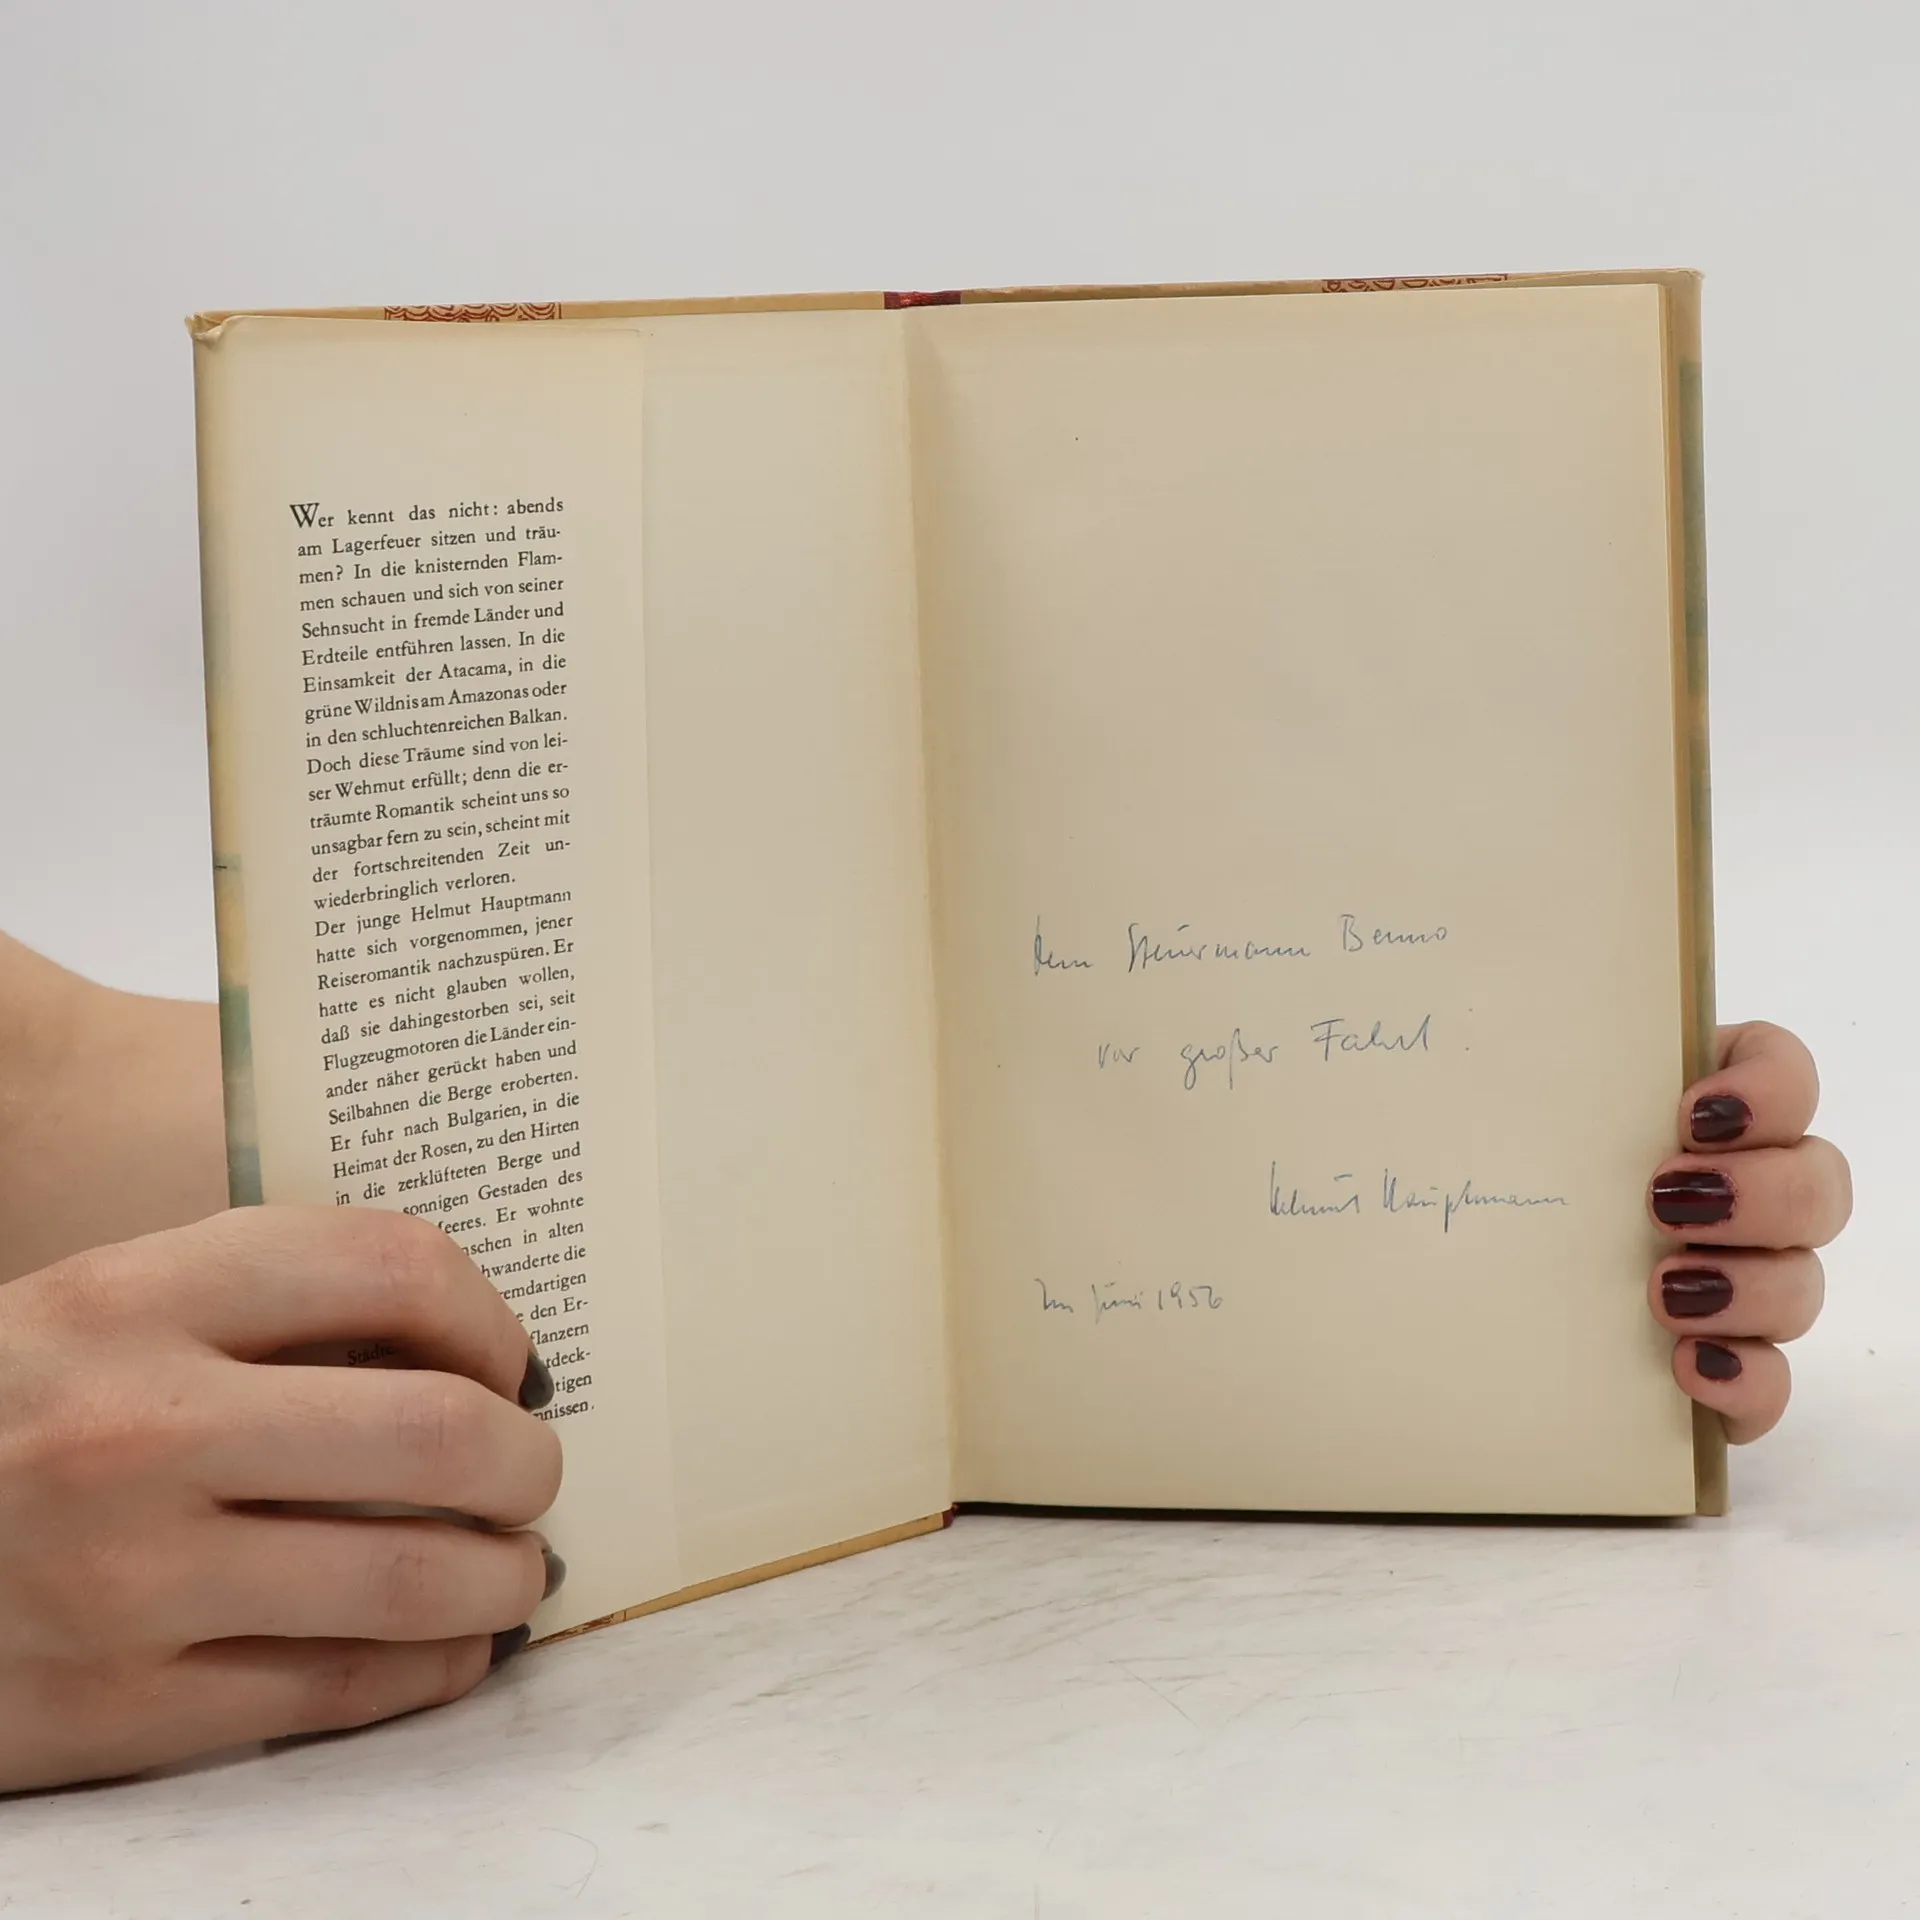 Wer kennt das nicht: abends
am Lagerfeuer sitzen und träu-
men? In die knisternden Flam-
men schauen und sich von seiner
Sehnsucht in fremde Länder und
Erdteile entführen lassen. In die
Einsamkeit der Atacama, in die
grüne Wildnis am Amazonas oder
in den schluchtenreichen Balkan.
Doch diese Träume sind von lei-
ser Wehmut erfüllt; denn die er-
träumte Romantik scheint uns so
unsagbar fern zu sein, scheint mit
der fortschreitenden Zeit un-
wiederbringlich verloren.
Der junge Helmut Hauptmann
hatte sich vorgenommen, jener
Reiseromantik nachzuspüren. Er
hatte es nicht glauben wollen,
daß sie dahingestorben sei, seit
Flugzeugmotoren die Länder ein-
ander näher gerückt haben und
Seilbahnen die Berge eroberten.
Er fuhr nach Bulgarien, in die
Heimat der Rosen, zu den Hirten
in die zerklüfteten Berge und
sonnigen Gestaden des
eeres. Er wohnte
nschen in alten
hwanderte die
emdartigen
den Er-
flanzern
Städte
tdeck-
tigen
nissen.
dem Steuermann Benno
vor großer Fahrt!
Helmut Hauptmann
Im Juni 1956